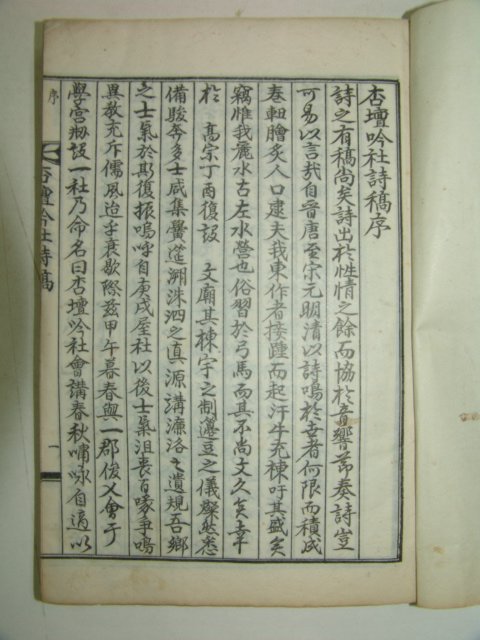 杏壇吟社詩稿序
詩之有稿尚矣詩出於性情之餘而協於音響節奏詩豈
可易以言哉自晉唐至宋元明清以詩鳴於世者何限而積成
卷軸膾炙人口逮夫我東作者接踵而起汗牛充棟吁其盛矣
竊惟我麗水古左水營也俗習於弓馬而其不尚文久矣幸
於 高宗丁酉復設 文廟其棟宇之制籩豆之儀粲然悉
備駿奔多士咸集黌筵溯洙泗之眞源講濂洛之遺規吾鄉
之士氣於斯復振嗚呼自庚戌屋社以後士氣沮喪百喙爭鳴
異敎充斥儒風迨乎衰歇際玆甲午暮春與一郡俊乂會于
學宮刱設一社乃命名曰杏壇吟社會講春秋嘯咏自適以
序
杏壇吟社詩稿
一